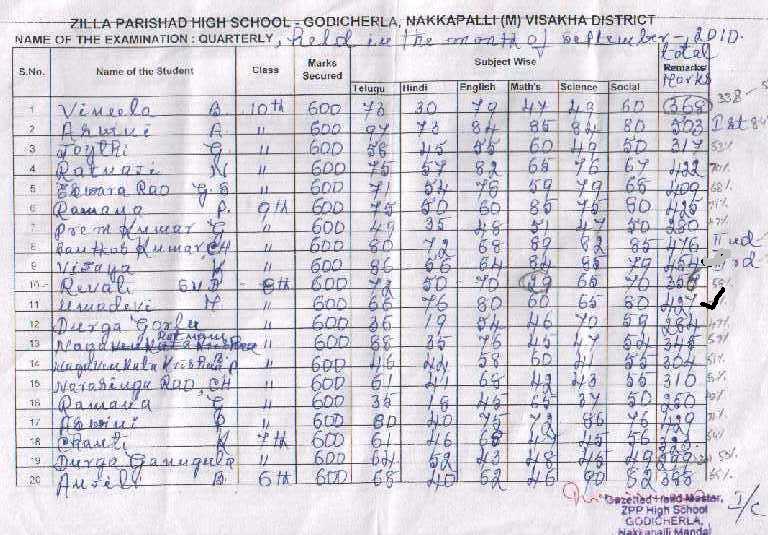 ZILLA PARISHAD HIGH SCHOOL - GODICHERLA, NAKKAPALLI (M) VISAKHA DISTRICT
NAME OF THE EXAMINATION : QUARTERLY, held in the month of september - 2010.
S.No. Name of the Student Class Marks Secured Subject Wise total Remarks Marks
Telugu Hindi English Math's Science Social
1 Vineela B. 10th 600 73 30 79 47 49 60 368 338
2 Aswini A. " 600 97 73 84 85 84 80 503 Ist 84
3 Joythi G. " 600 58 45 55 60 49 50 317 53%
4 Ratnaji N " 600 75 57 82 65 76 67 422 70%
5 Eswara Rao G.S " 600 71 54 76 59 79 65 409 68%
6 Ramana P. 9th 600 75 50 60 85 75 80 425 71%
7 Prem Kumar G " 600 49 35 48 51 47 50 280 47%
8 Santhosh Kumar CH " 600 80 72 68 89 82 85 476 IInd
9 Vijaya K " 600 86 56 84 84 85 79 rd
10 Revati 8th 600 72 50 70 39 65 70 59%
11 Umadevi Y " 600 66 76 80 60 65 80 427
12 Durga " 600 36 19 54 46 70 59 284 47%
13 " 600 88 35 76 45 47 54 345 57%
14 " 600 46 44 58 60 41 55 304 51%
15 Narasinga Rao, CH " 600 61 41 68 42 43 55 310 51%
16 Ramana G " 600 35 18 45 65 37 50 250
17 Aswini P " 600 80 40 75 72 86 76 429 71%
18 Chanti K 7th 600 61 46 68 47 45 56 54%
19 Durga Ganugula " 600 64 52 43 48 45 49
20 Anjali B. 6th 600 68 40 62 46 90 82 385
Gazetted Head Master, I/c
ZPP High School
GODICHERLA,
Nakkapalli Mandal